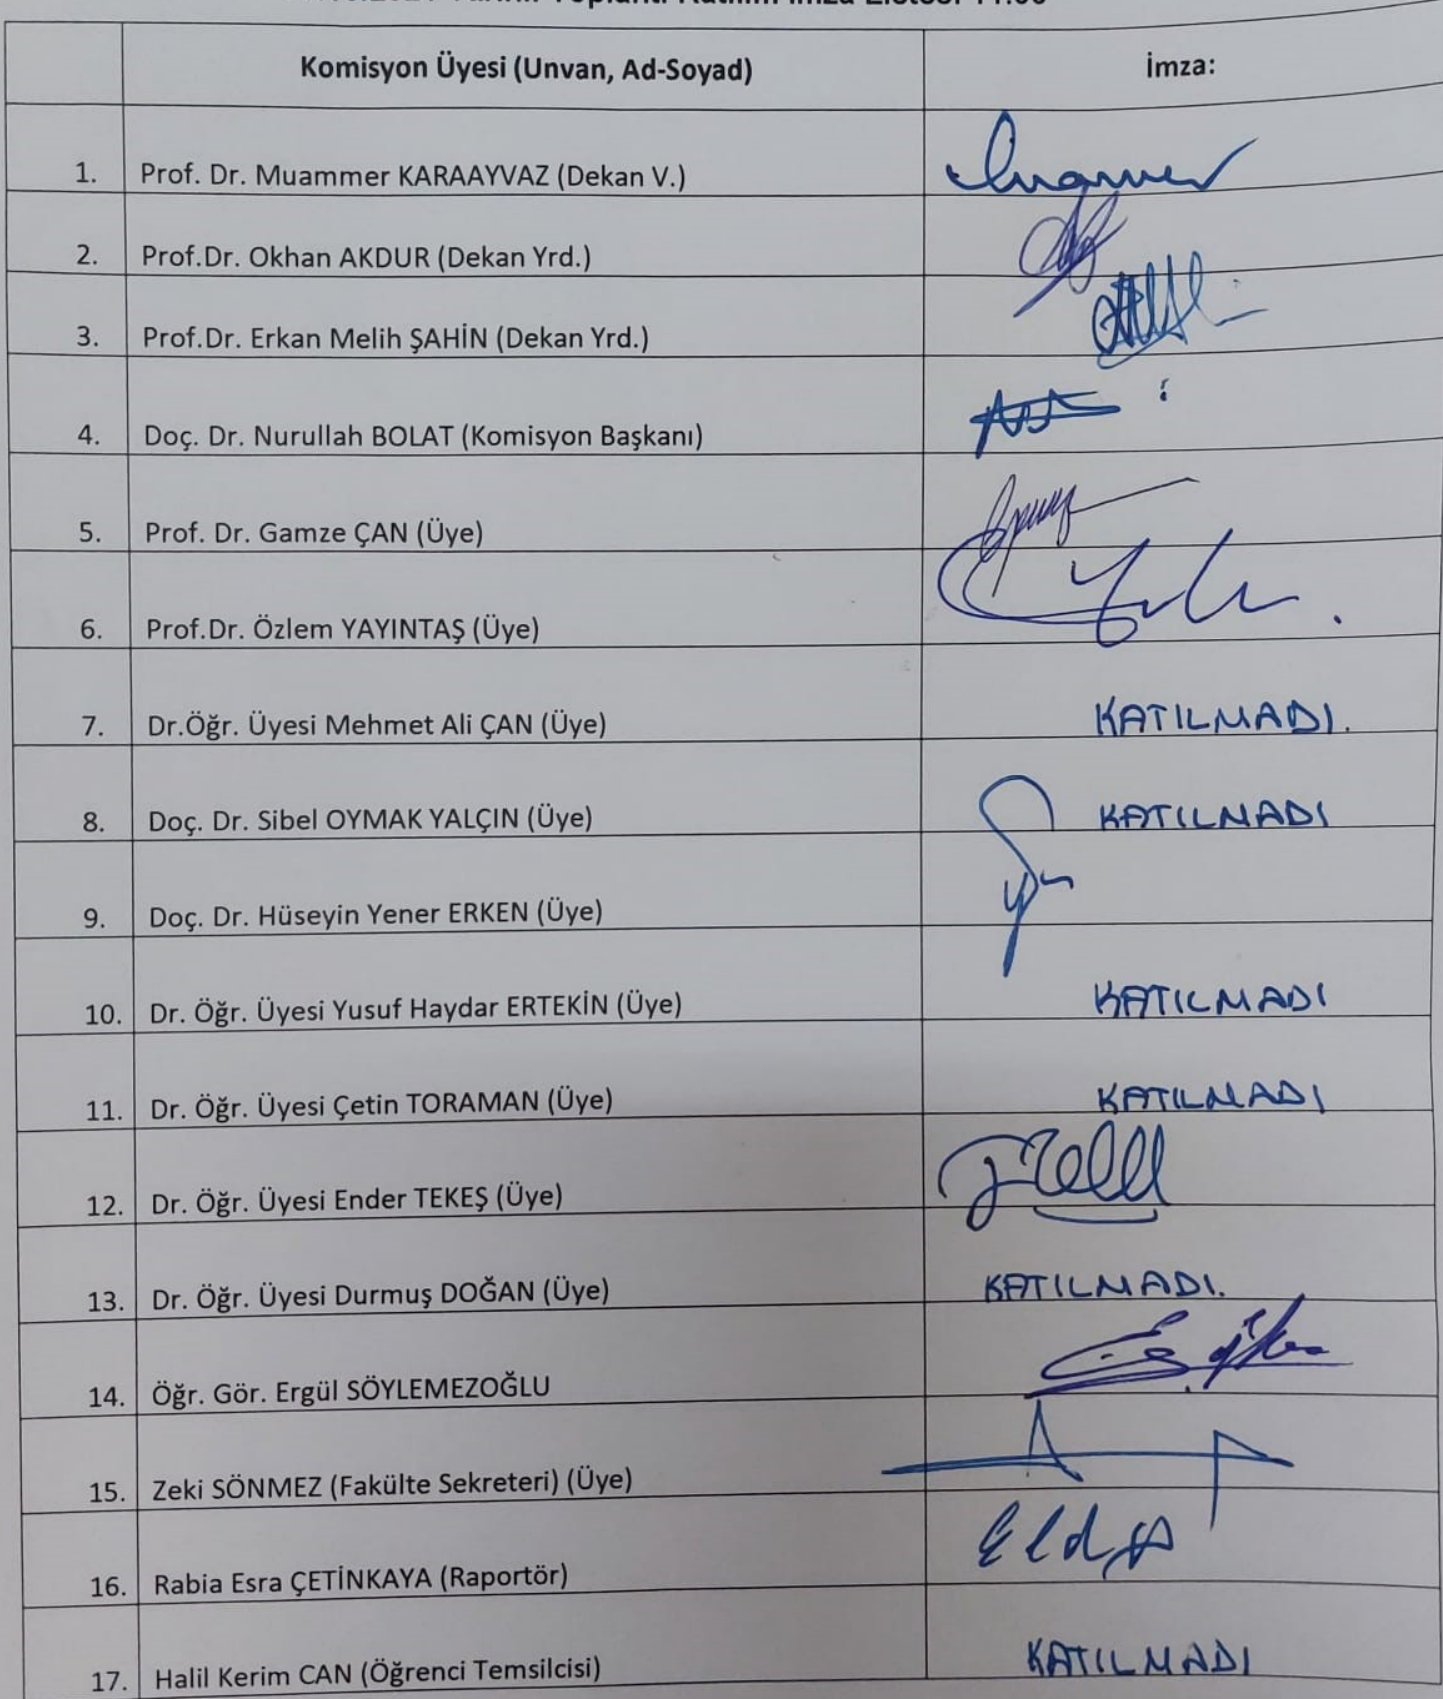 Komisyon Üyesi (Unvan, Ad-Soyad) İmza:
1. Prof. Dr. Muammer KARAAYVAZ (Dekan V.)
2. Prof.Dr. Okhan AKDUR (Dekan Yrd.)
3. Prof.Dr. Erkan Melih ŞAHİN (Dekan Yrd.)
4. Doç. Dr. Nurullah BOLAT (Komisyon Başkanı)
5. Prof. Dr. Gamze ÇAN (Üye)
6. Prof.Dr. Özlem YAYINTAŞ (Üye)
7. Dr.Öğr. Üyesi Mehmet Ali ÇAN (Üye) KATILMADI.
8. Doç. Dr. Sibel OYMAK YALÇIN (Üye) KATILMADI
9. Doç. Dr. Hüseyin Yener ERKEN (Üye)
10. Dr. Öğr. Üyesi Yusuf Haydar ERTEKİN (Üye) KATILMADI
11. Dr. Öğr. Üyesi Çetin TORAMAN (Üye) KATILMADI
12. Dr. Öğr. Üyesi Ender TEKEŞ (Üye)
13. Dr. Öğr. Üyesi Durmuş DOĞAN (Üye) KATILMADI.
14. Öğr. Gör. Ergül SÖYLEMEZOĞLU
15. Zeki SÖNMEZ (Fakülte Sekreteri) (Üye)
16. Rabia Esra ÇETİNKAYA (Raportör)
17. Halil Kerim CAN (Öğrenci Temsilcisi) KATILMADI